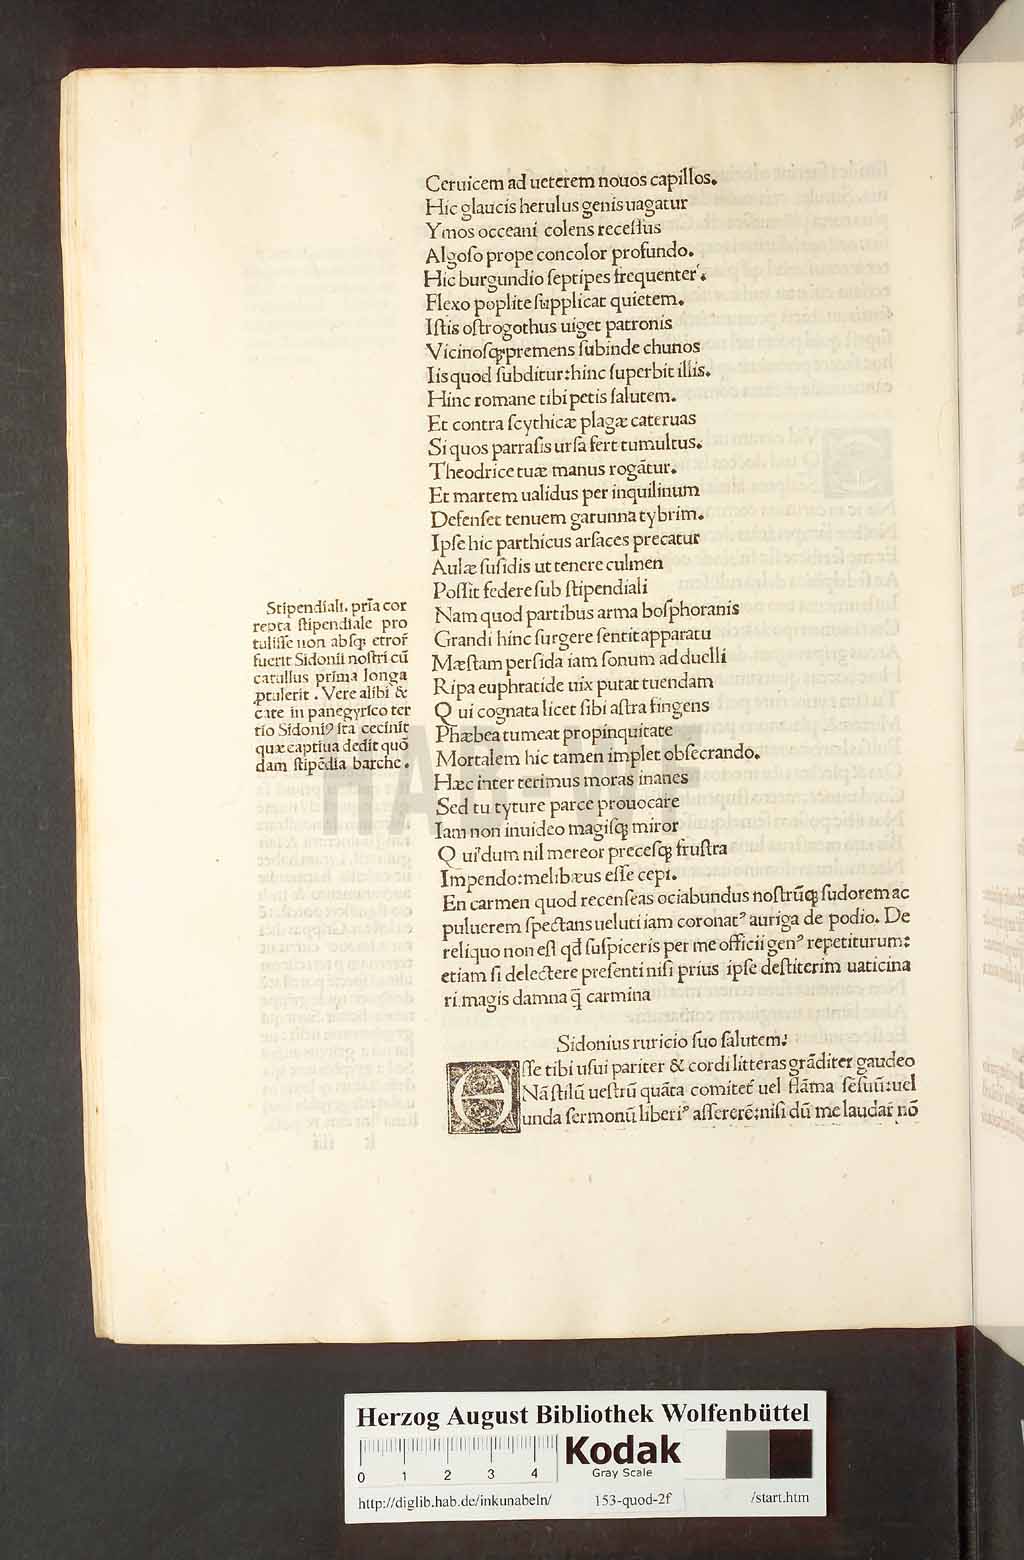 Ceruicem ad ueterem nouos capillos.
Hic glaucis herulus genis uagatur
Ymos occeani colens recessus
Algoso prope concolor profundo.
Hic burgundio septipes frequenter.
Flexo poplite supplicat quietem.
Istis ostrogothus uiget patronis
Vicinosqꝫ premens subinde chunos
Iis quod subditur: hinc superbit illis.
Hinc romane tibi petis salutem.
Et contra scythicæ plagæ cateruas
Si quos parrasis ursa fert tumultus.
Theodrice tuæ manus rogãtur.
Et martem ualidus per inquilinum
Defenset tenuem garunna tybrim.
Ipse hic parthicus arsaces precatur
Aulæ susidis ut tenere culmen
Possit federe sub stipendiali
Nam quod partibus arma bosphoranis
Grandi hinc surgere sentit apparatu
Mæstam persida iam sonum ad duelli
Ripa euphratide uix putat tuendam
Qui cognata licet sibi astra fingens
Phæbea tumeat propinquitate
Mortalem hic tamen implet obsecrando.
Hæc inter terimus moras inanes
Sed tu tyture parce prouocare
Iam non inuideo magisqꝫ miror
Qui dum nil mereor precesqꝫ frustra
Impendo: melibæus esse cepi.
En carmen quod recenseas ociabundus nostrũqꝫ sudorem ac
puluerem spectans ueluti iam coronatꝰ auriga de podio. De
reliquo non est qd̃ suspiceris per me officii genꝰ repetiturum:
etiam si delectere presenti nisi prius ipse destiterim uaticina
ri magis damna q̃ carmina
Stipendiali. prĩa cor
repta stipendiale pro
tulisse non absqꝫ error̃
fuerit Sidonii nostri cũ
catullus prima longa
ꝓtulerit. Vere alibi &
cate in panegyrico ter
tio Sidoniꝰ ita cecinit
quæ captiua dedit quõ
dam stipẽdia barche.
Sidonius ruricio suo salutem:
Esse tibi usui pariter & cordi litteras grãditer gaudeo
Nã stilũ uestrũ quãta comitet̃ uel flãma sẽsuũ: uel
unda sermonũ liberiꝰ assererẽ: nisi dũ me laudar̃ nõ
HAB-WF
Herzog August Bibliothek Wolfenbüttel
0 1 2 3 4
Kodak
Gray Scale
http://diglib.hab.de/inkunabeln/ 153-quod-2f /start.htm